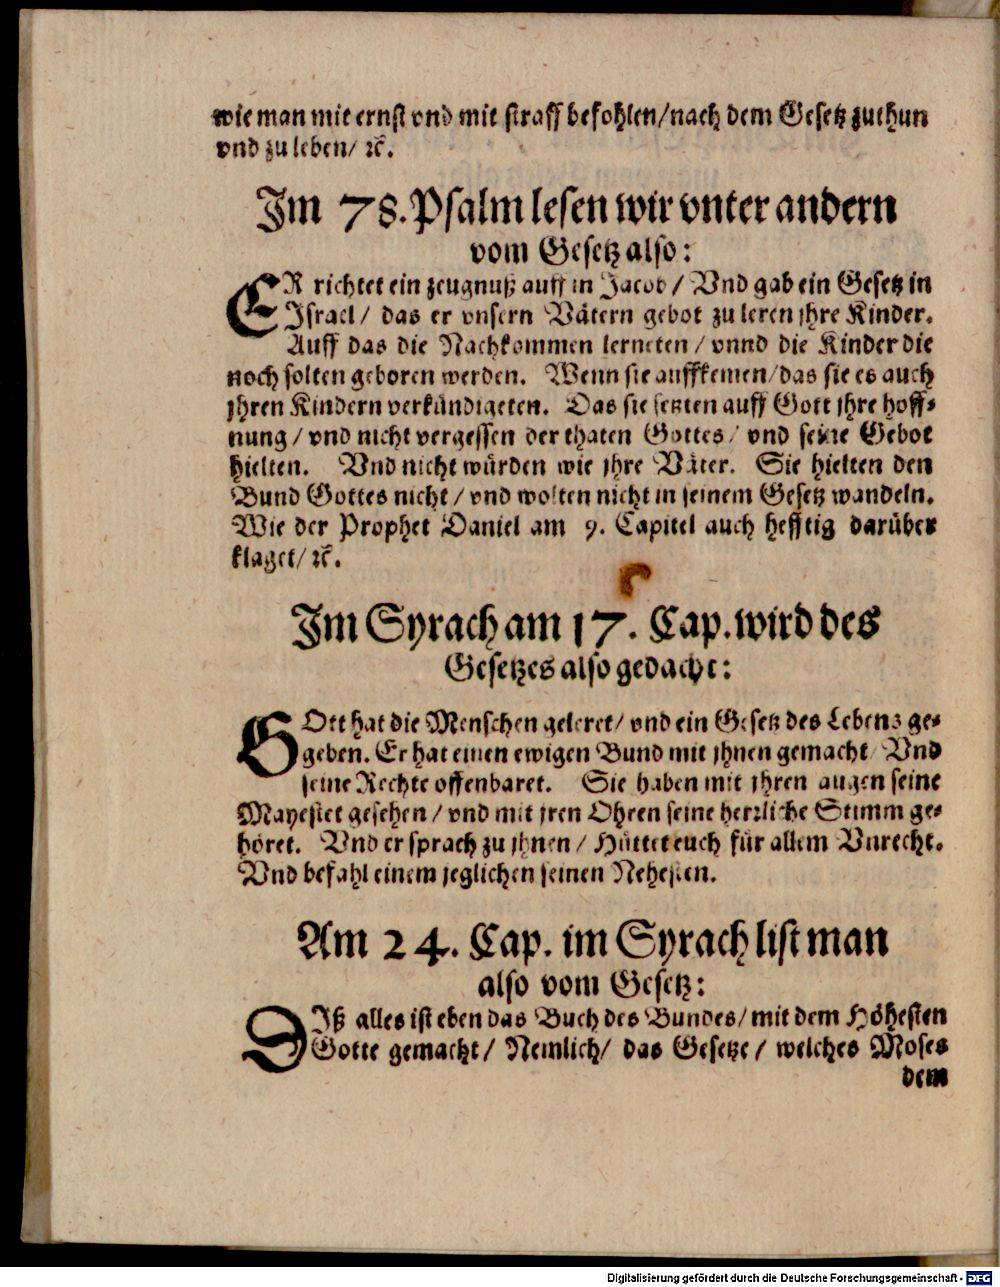 wie man mit ernst vnd mit straff befohlen/nach dem Gesetz zuthun
vnd zu leben/ ꝛc̃.
Im 78. Psalm lesen wir vnter andern
vom Gesetz also:
ER richtet ein zeugnuß auff in Jacob / Vnd gab ein Gesetz in
Israel/ das er vnsern Vätern gebot zu leren jhre Kinder.
Auff das die Nachkommen lerneten / vnnd die Kinder die
noch solten geboren werden. Wenn sie auffkemen/das sie es auch
jhren Kindern verkündigeten. Das sie setzten auff Gott jhre hoff⸗
nung / vnd nicht vergessen der thaten Gottes/ vnd seine Gebot
hielten. Vnd nicht würden wie jhre Väter. Sie hielten den
Bund Gottes nicht / vnd wolten nicht in seinem Gesetz wandeln.
Wie der Prophet Daniel am 9. Capitel auch hefftig darüber
klaget/ ꝛc̃.
Im Syrach am 17. Cap. wird des
Gesetzes also gedacht:
GOtt hat die Menschen geleret/ vnd ein Gesetz des Lebens ge⸗
geben. Er hat einen ewigen Bund mit jhnen gemacht/ Vnd
seine Rechte offenbaret. Sie haben mit jhren augen seine
Mayestet gesehen / vnd mit jren Ohren seine herrliche Stimm ge⸗
höret. Vnd er sprach zu jhnen / Hüttet euch für allem Vnrecht.
Vnd befahl einem jeglichen seinen Nehesten.
Am 24. Cap. im Syrach list man
also vom Gesetz:
DIß alles ist eben das Buch des Bundes/ mit dem Höhesten
Gotte gemacht/ Nemlich/ das Gesetze / welches Moses
dem
Digitalisierung gefördert durch die Deutsche Forschungsgemeinschaft - DFG